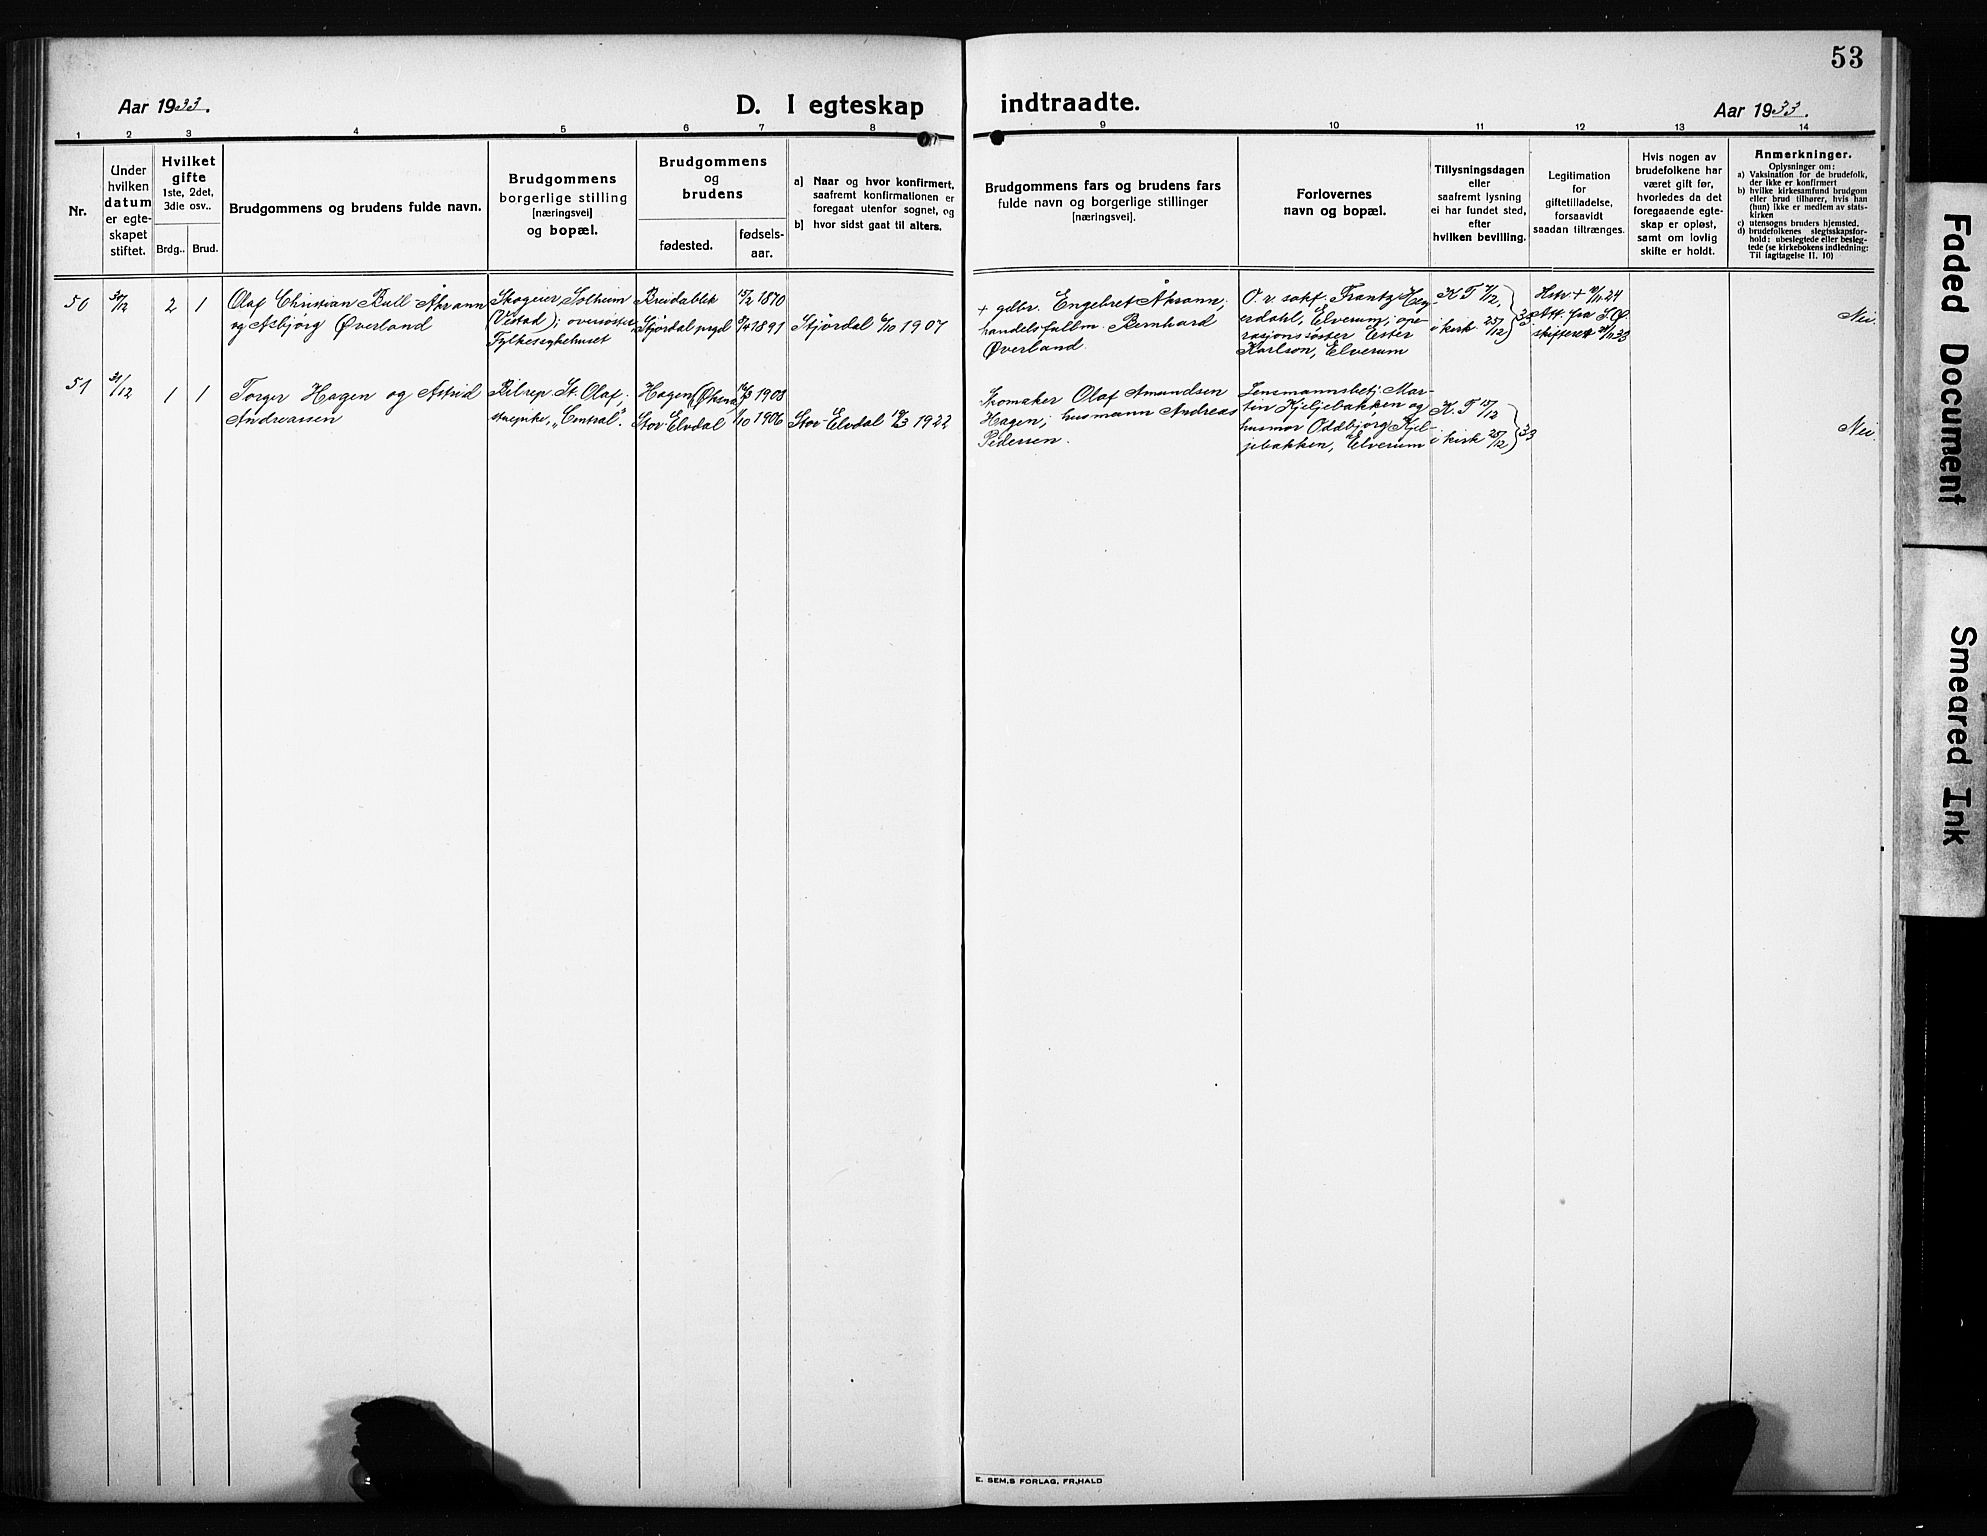 53
Aar 1933.
D. I egteskap
indtraadte.
Aar 1933.
1 2 3 4 5 6 7 8 9 10 11 12 13 14
Nr.
Under
hvilken
datum
er egte-
skapet
stiftet.
Hvilket
gifte
1ste, 2det,
3die osv..
Brdg..
Brud.
Brudgommens og brudens fulde navn.
Brudgommens
borgerlige stilling
[næringsvei]
og bopæl.
Brudgommens
og
brudens
fødested.
fødsels-
aar.
a) Naar og hvor konfirmert,
saafremt konfirmationen er
foregaat utenfor sognet, og
b) hvor sidst gaat til alters.
Brudgommens fars og brudens fars
fulde navn og borgerlige stillinger
[næringsvei].
Forlovernes
navn og bopæl.
Tillysningsdagen
eller
saafremt lysning
ei har fundet sted,
efter
hvilken bevilling.
Legitimation
for
giftetilladelse,
forsaavidt
saadan tiltrænges.
Hvis nogen av
brudefolkene har
været gift før,
hvorledes da det
foregaaende egte-
skap er opløst,
samt om lovlig
skifte er holdt.
Anmerkninger.
Oplysninger om:
a) Vaksination for de brudefolk,
der ikke er konfirmert
b) hvilke kirkesamfund brudgom
eller brud tilhører, hvis han
(hun) ikke er medlem av stats-
kirken
c) utensogns bruders hjemsted.
d) brudefolkenes slegtsskapsfor-
hold: ubeslegtede eller besleg-
tede (se kirkebokens indledning:
Til iagttagelse II. 10)
50
30/12
2
1
Olaf Christian Bull Åkrann
og Asbjørg Øverland
Skogeier, Solheim
(Vestad); oversøster
Fylkessykehuset
Breidablik
Stjørdal prgd
15/2 1870
1891
Stjørdal 6/10 1907
+ gdbr. Engebret Åkrann;
handelsfullm. Bernhard
Øverland.
O. r sakf. Frantz Hey-
erdahl, Elverum; ope-
rasjonssøster Ester
Karlson, Elverum
K T
i kirk. 25/12
33
Hstr +
Att. fra S.Ø.
skifterett
Nei.
51
31/12
1
1
Torger Hagen og Astrid
Andreassen
Bilrep St. Olaf;
stuepike, "Central".
Hagen
Stor-Elvdal
1908
1/10 1906
Stor-Elvdal 19/3 1922
Skomaker Olaf Amundsen
Hagen; husmann Andreas
Pedersen.
Lensmannsbetj. Mar-
tin Kjeljebakken og
husmor Oddbjørg Kjel-
jebakken, Elverum
K. T
i kirk 25/12
33
Nei.
E. SEM.S FORLAG. FR.HALD
Faded Document
Smeared Ink